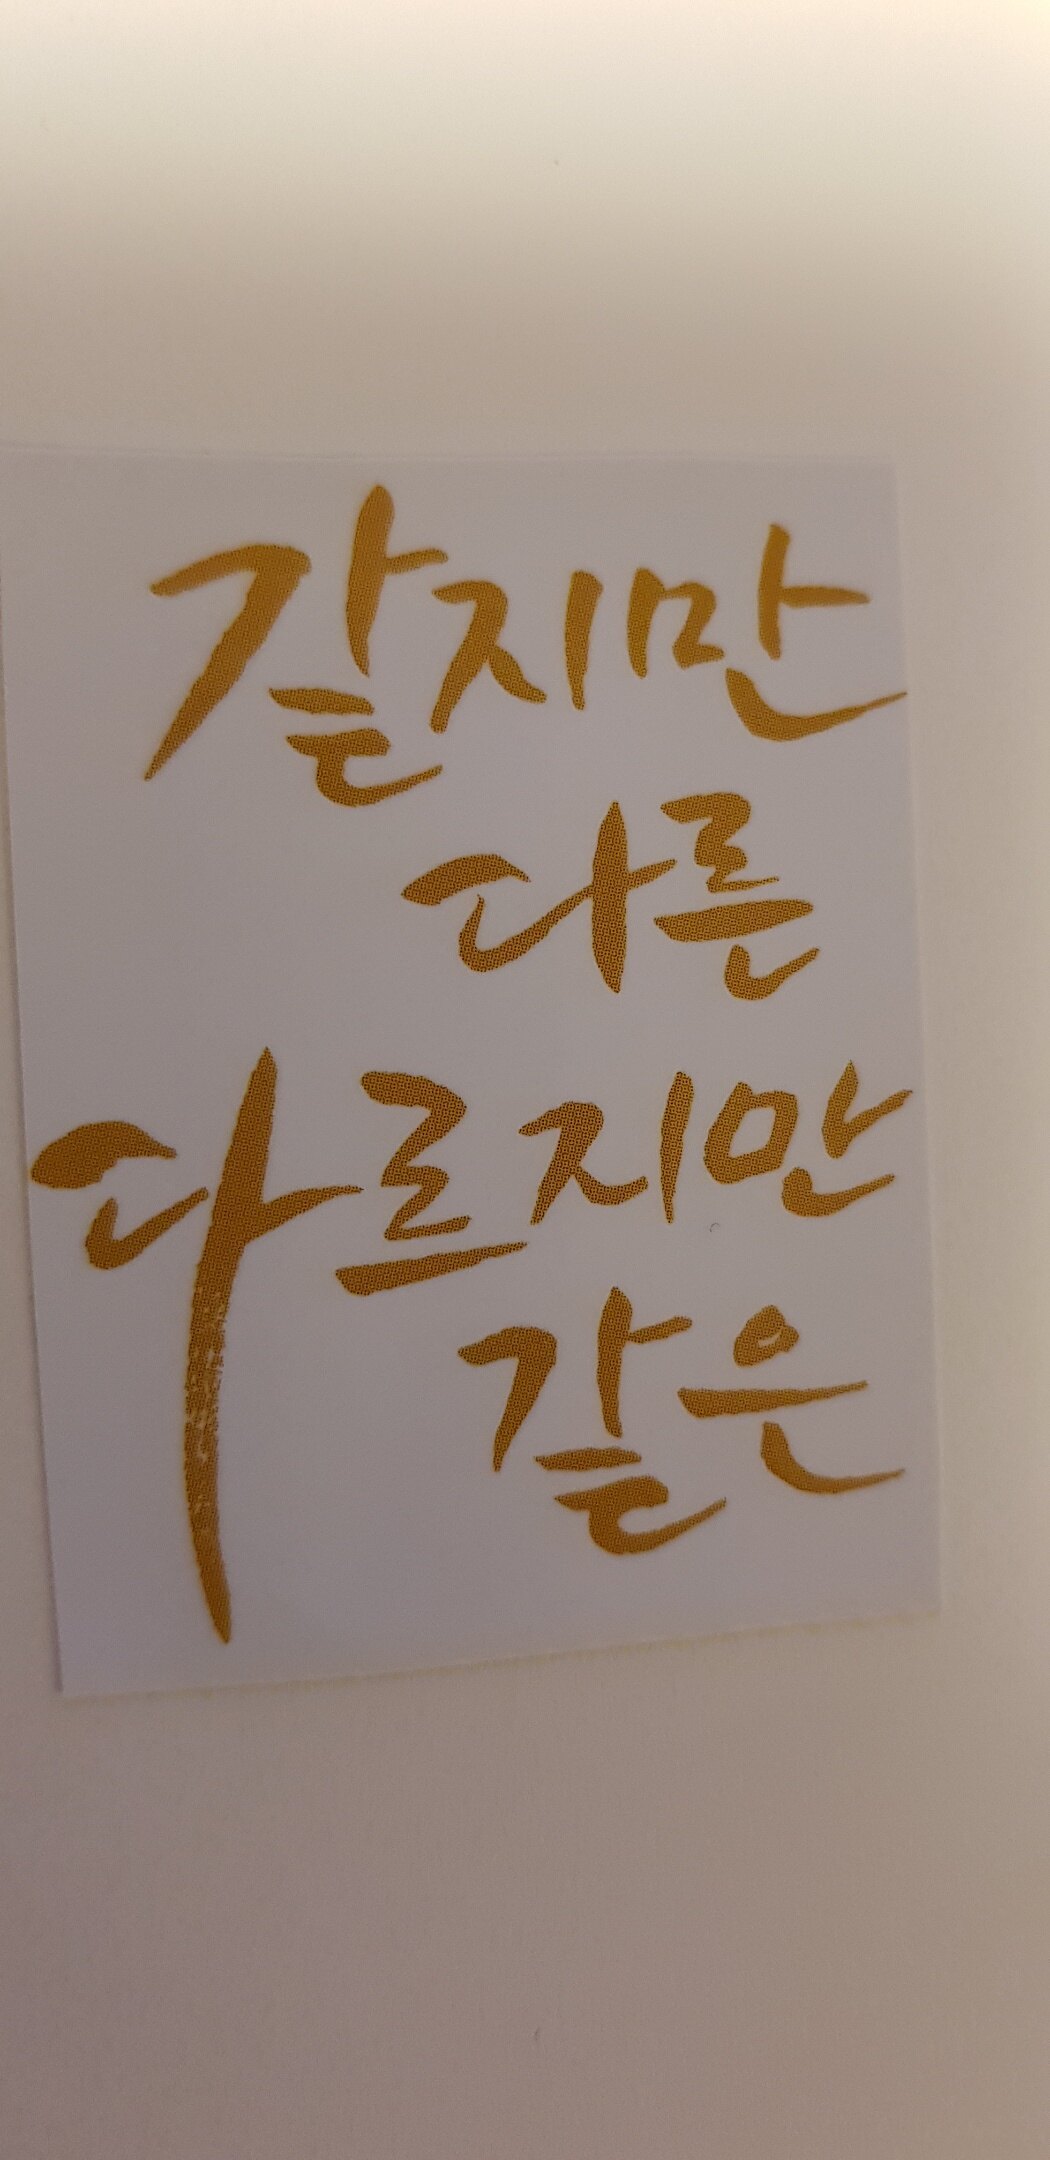 같지만
다른
다르지만
같은